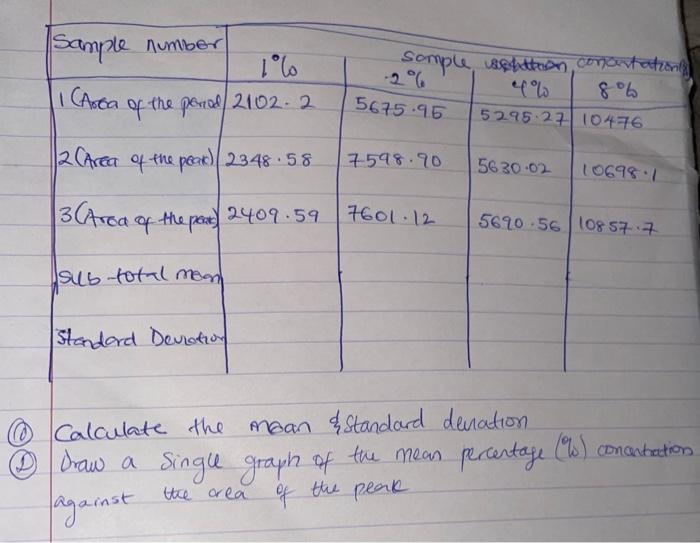 Sample number
sample concentration
1% 2% 4% 8%
1 (Area of the period 2102.2 5675.95 5295.27 10476
2 (Area of the peak) 2348.58 7598.90 5630.02 10698.1
3 (Area of the peak) 2409.59 7601.12 5690.56 10857.7
Sub-total mean
Standard Deviation
① Calculate the mean & Standard deviation
② Draw a single graph of the mean percentage (%) concentration
against the area of the peak